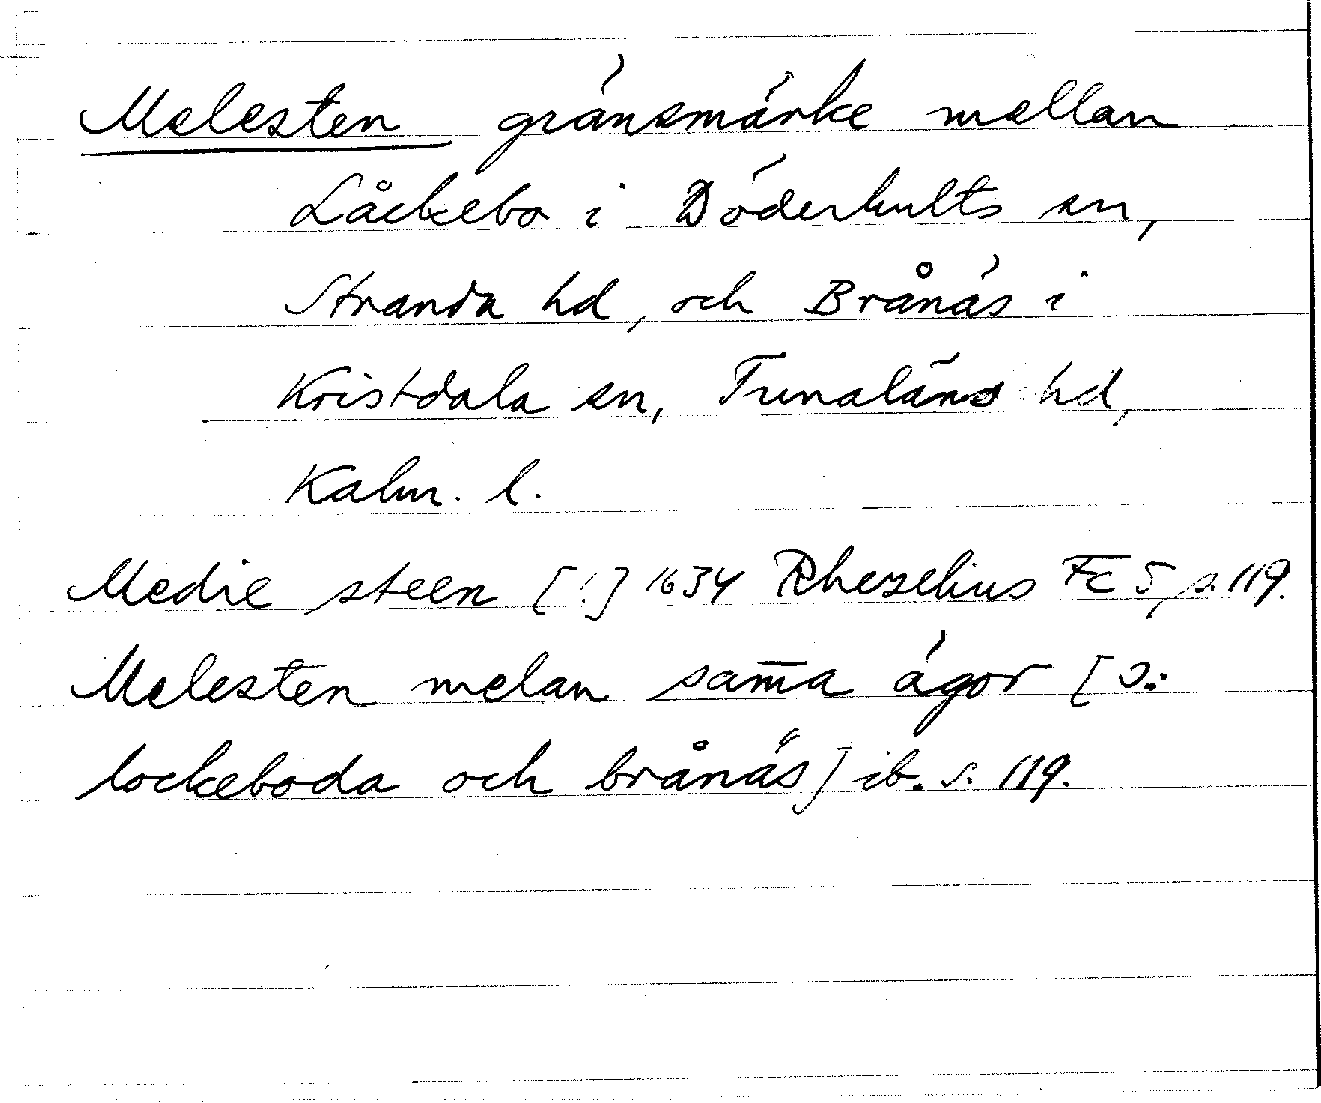 Melesten gränsmärke mellan
Låckebo i Döderhults sn,
Stranda hd, och Brånäs i
Kristdala sn, Tunaläns hd,
Kalm. l.
Medie steen [!] 1634 Rhezelius Fc 5, s. 119.
Melesten melan sam̅a ägor [ɔ:
lockeboda och brånäs] ib. s. 119.